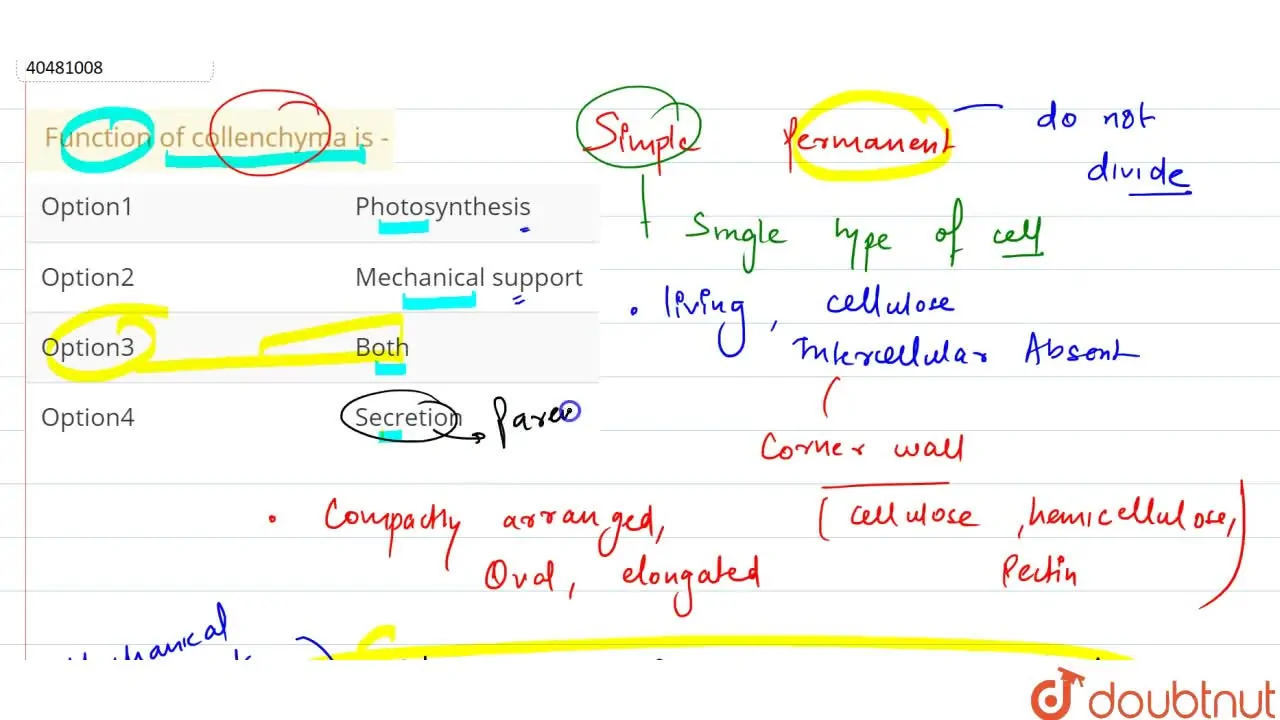 40481008
Function of collenchyma is -
Option1 Photosynthesis
Option2 Mechanical support
Option3 Both
Option4 Secretion → Paren
Simple Permanent — do not
divide
Single type of cell
• living, cellulose
Intercellular Absent
Corner wall
(cellulose, hemicellulose,
Pectin)
• Compactly arranged,
Oval, elongated
Mechanical
doubtnut